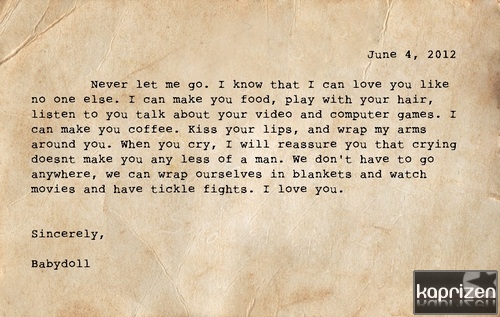 June 4, 2012
Never let me go. I know that I can love you like
no one else. I can make you food, play with your hair,
listen to you talk about your video and computer games. I
can make you coffee. Kiss your lips, and wrap my arms
around you. When you cry, I will reassure you that crying
doesnt make you any less of a man. We don't have to go
anywhere, we can wrap ourselves in blankets and watch
movies and have tickle fights. I love you.
Sincerely,
Babydoll
kaprizen